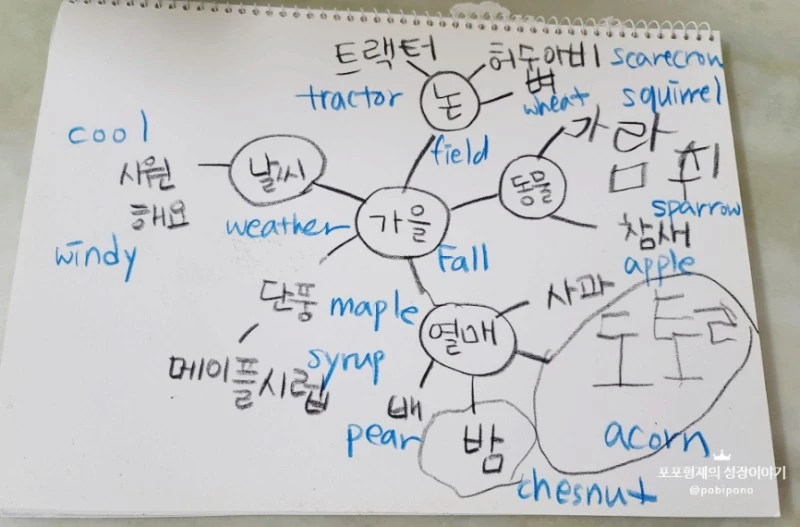 트랙터
허수아비 scarecrow
tractor
논
벼
wheat
squirrel
cool
field
가람
쥐
시원
해요
날씨
동물
sparrow
weather
가을
참새
windy
Fall
apple
단풍 maple
열매
사과
도토리
메이플시럽
syrup
배
pear
밤
acorn
chesnut
포포형제의 성장이야기
@pobipono